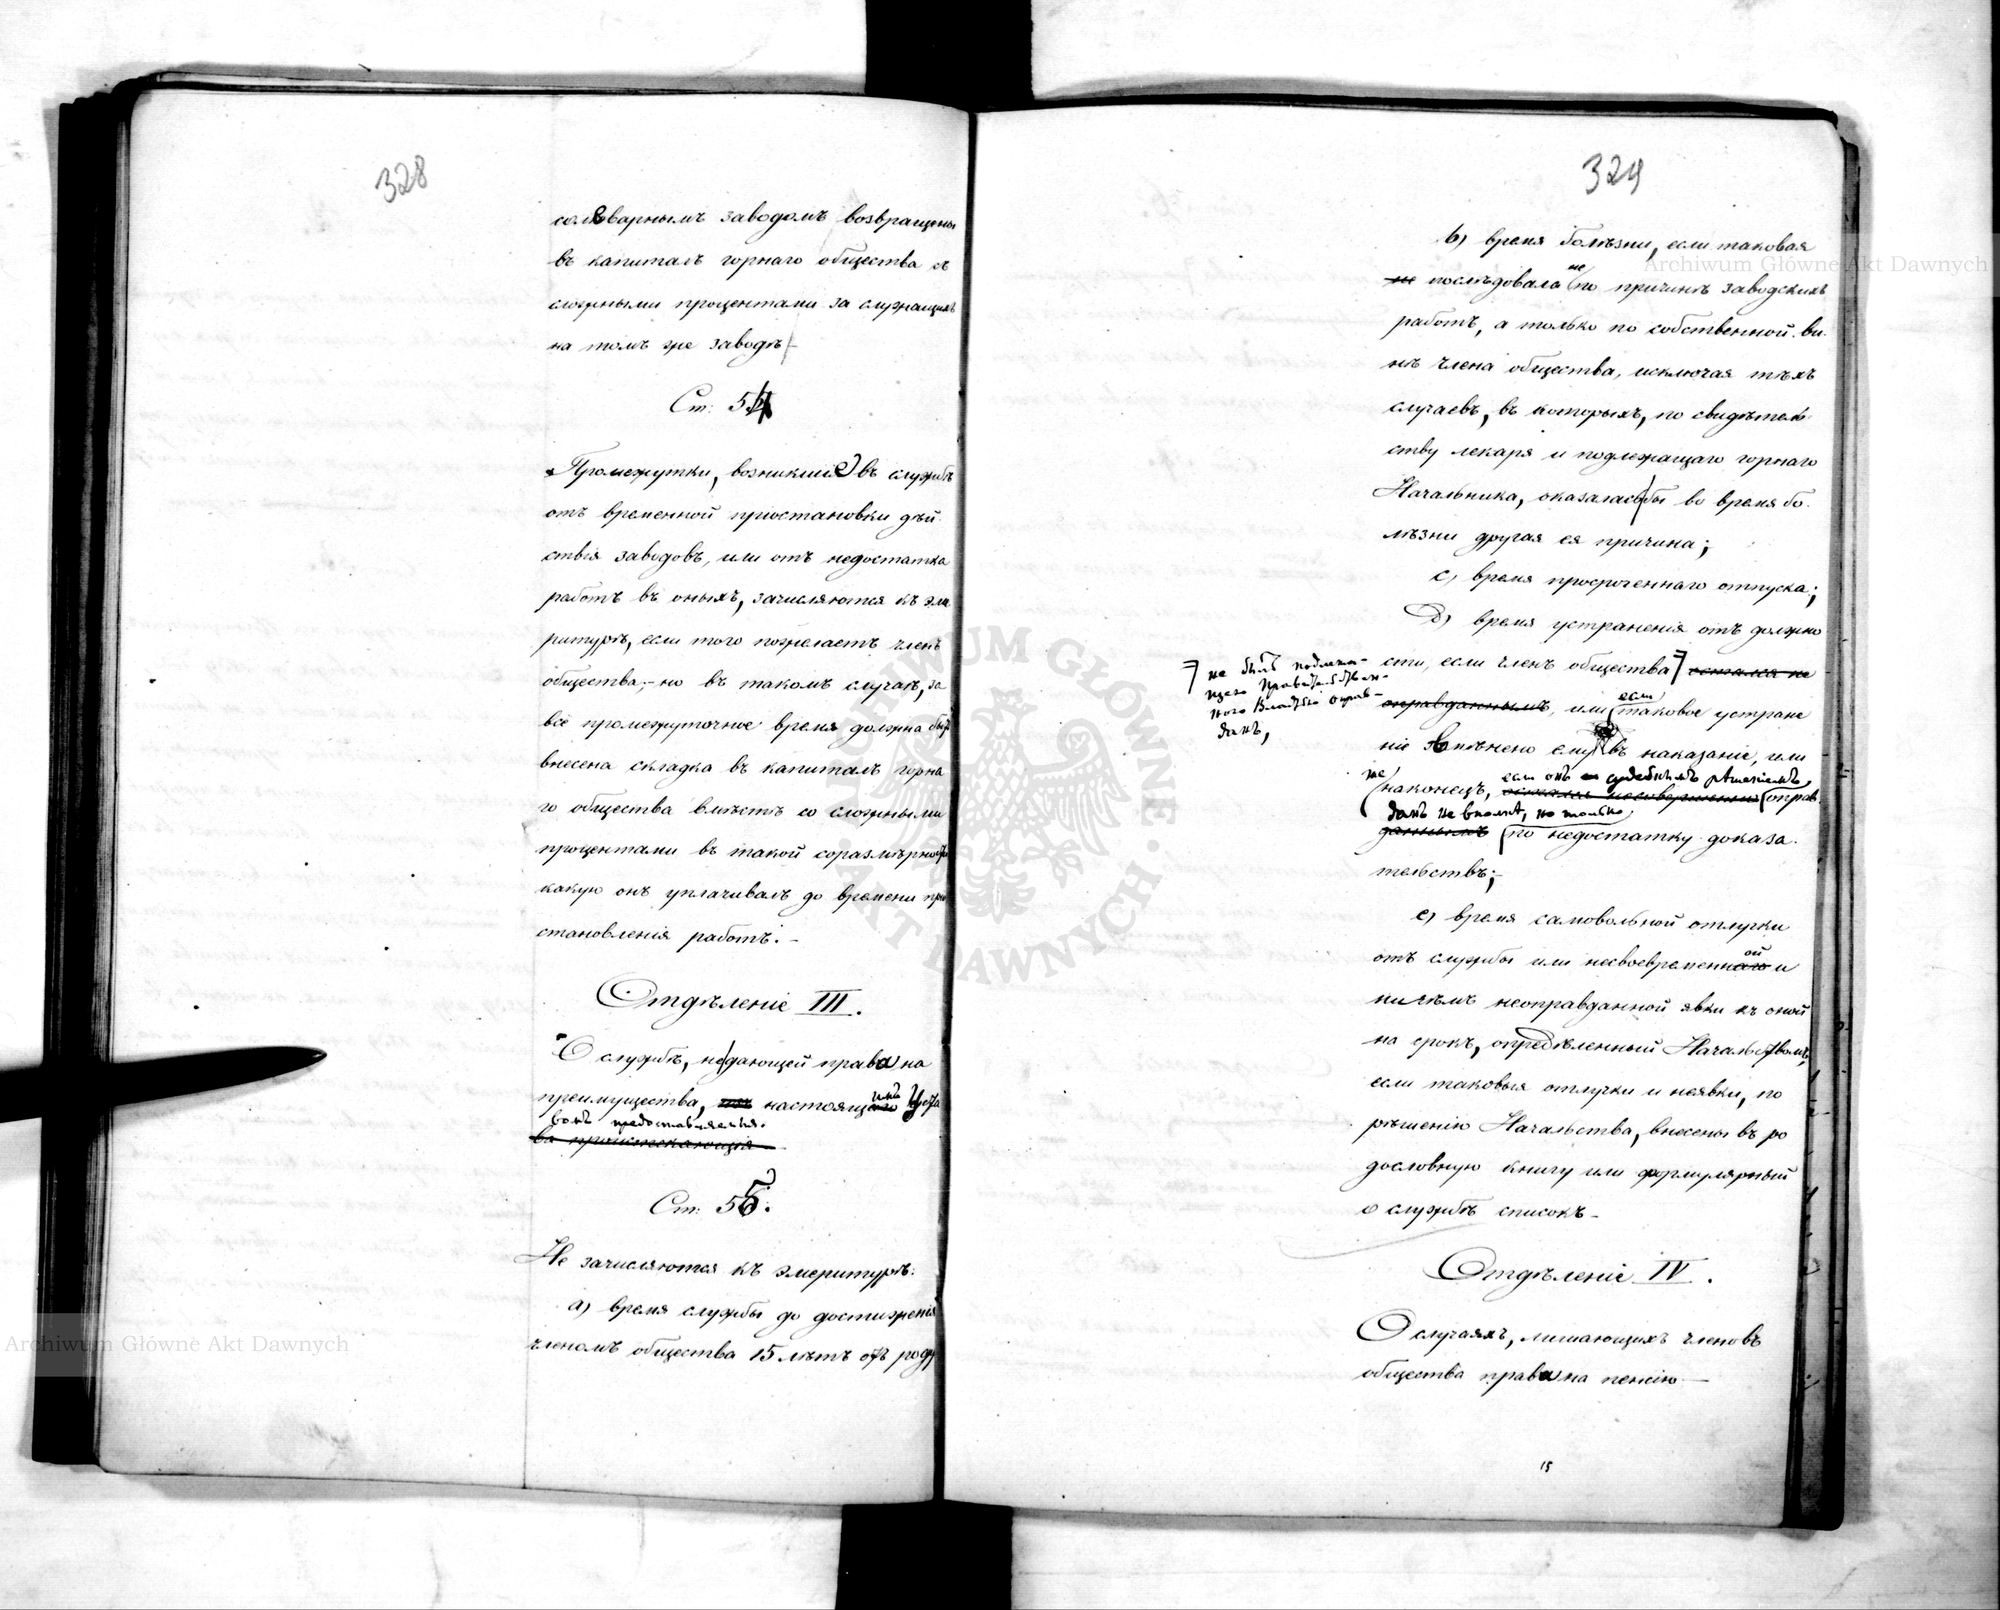 328
солеварнымъ заводомъ возвращены
въ капиталъ горнаго общества съ
сложными процентами за служащихъ
на томъ же заводѣ
Ст: 54
Промежутки, возникшіе въ службѣ
отъ временной пріостановки дѣй
ствія заводовъ, или отъ недостатка
работъ въ оныхъ, зачисляются къ эме
ритурѣ, если того пожелаетъ членъ
общества; но въ такомъ случаѣ, за
всё промежуточное время должна быть
внесена складка въ капиталъ горна
го общества вмѣстѣ со сложными
процентами въ такой соразмѣрности
какую онъ уплачивалъ до времени прі
становленія работъ.-
Отдѣленіе III.
О службѣ, не дающей права на
преимущества, настоящимъ Уста
вомъ предоставляемыя.
ва проистекающія
Ст: 55.
Не зачисляются къ эмеритурѣ:
а) время службы до достиженія
членомъ общества 15 лѣтъ отъ роду
329
b) время болѣзни, если таковая
не послѣдовала не по причинѣ заводскихъ
работъ, а только по собственной ви
нѣ члена общества, исключая тѣхъ
случаевъ, въ которыхъ, по свидѣтель
ству лекаря и подлежащаго горнаго
Начальника, оказалась бы во время бо
лѣзни другая ея причина;
с) время просроченнаго отпуска;
D) время устраненія отъ должно
сти, если членъ общества остался не
не былъ подлежа-
щею Правительствен-
ною Властью оправ-
данъ,
оправданнымъ, или если таковое устране
ніе вмѣнено ему въ наказаніе, или
же наконецъ, если онъ судебнымъ рѣшеніемъ, оправ
данъ не вполнѣ, но только
даннымъ по недостатку доказа
тельствъ;-
е) время самовольной отлучки
отъ службы или несвоевременной и
ничѣмъ неоправданной явки къ оной
на срокъ, опредѣленный Начальствомъ,
если таковыя отлучки и неявки, по
рѣшенію Начальства, внесены въ ро
дословную книгу или формулярный
о службѣ списокъ-
Отдѣленіе IV.
О случаяхъ, лишающихъ членовъ
общества права на пенсію-
15
Archiwum Główne Akt Dawnych
Archiwum Główne Akt Dawnych
ARCHIWUM GŁÓWNE AKT DAWNYCH